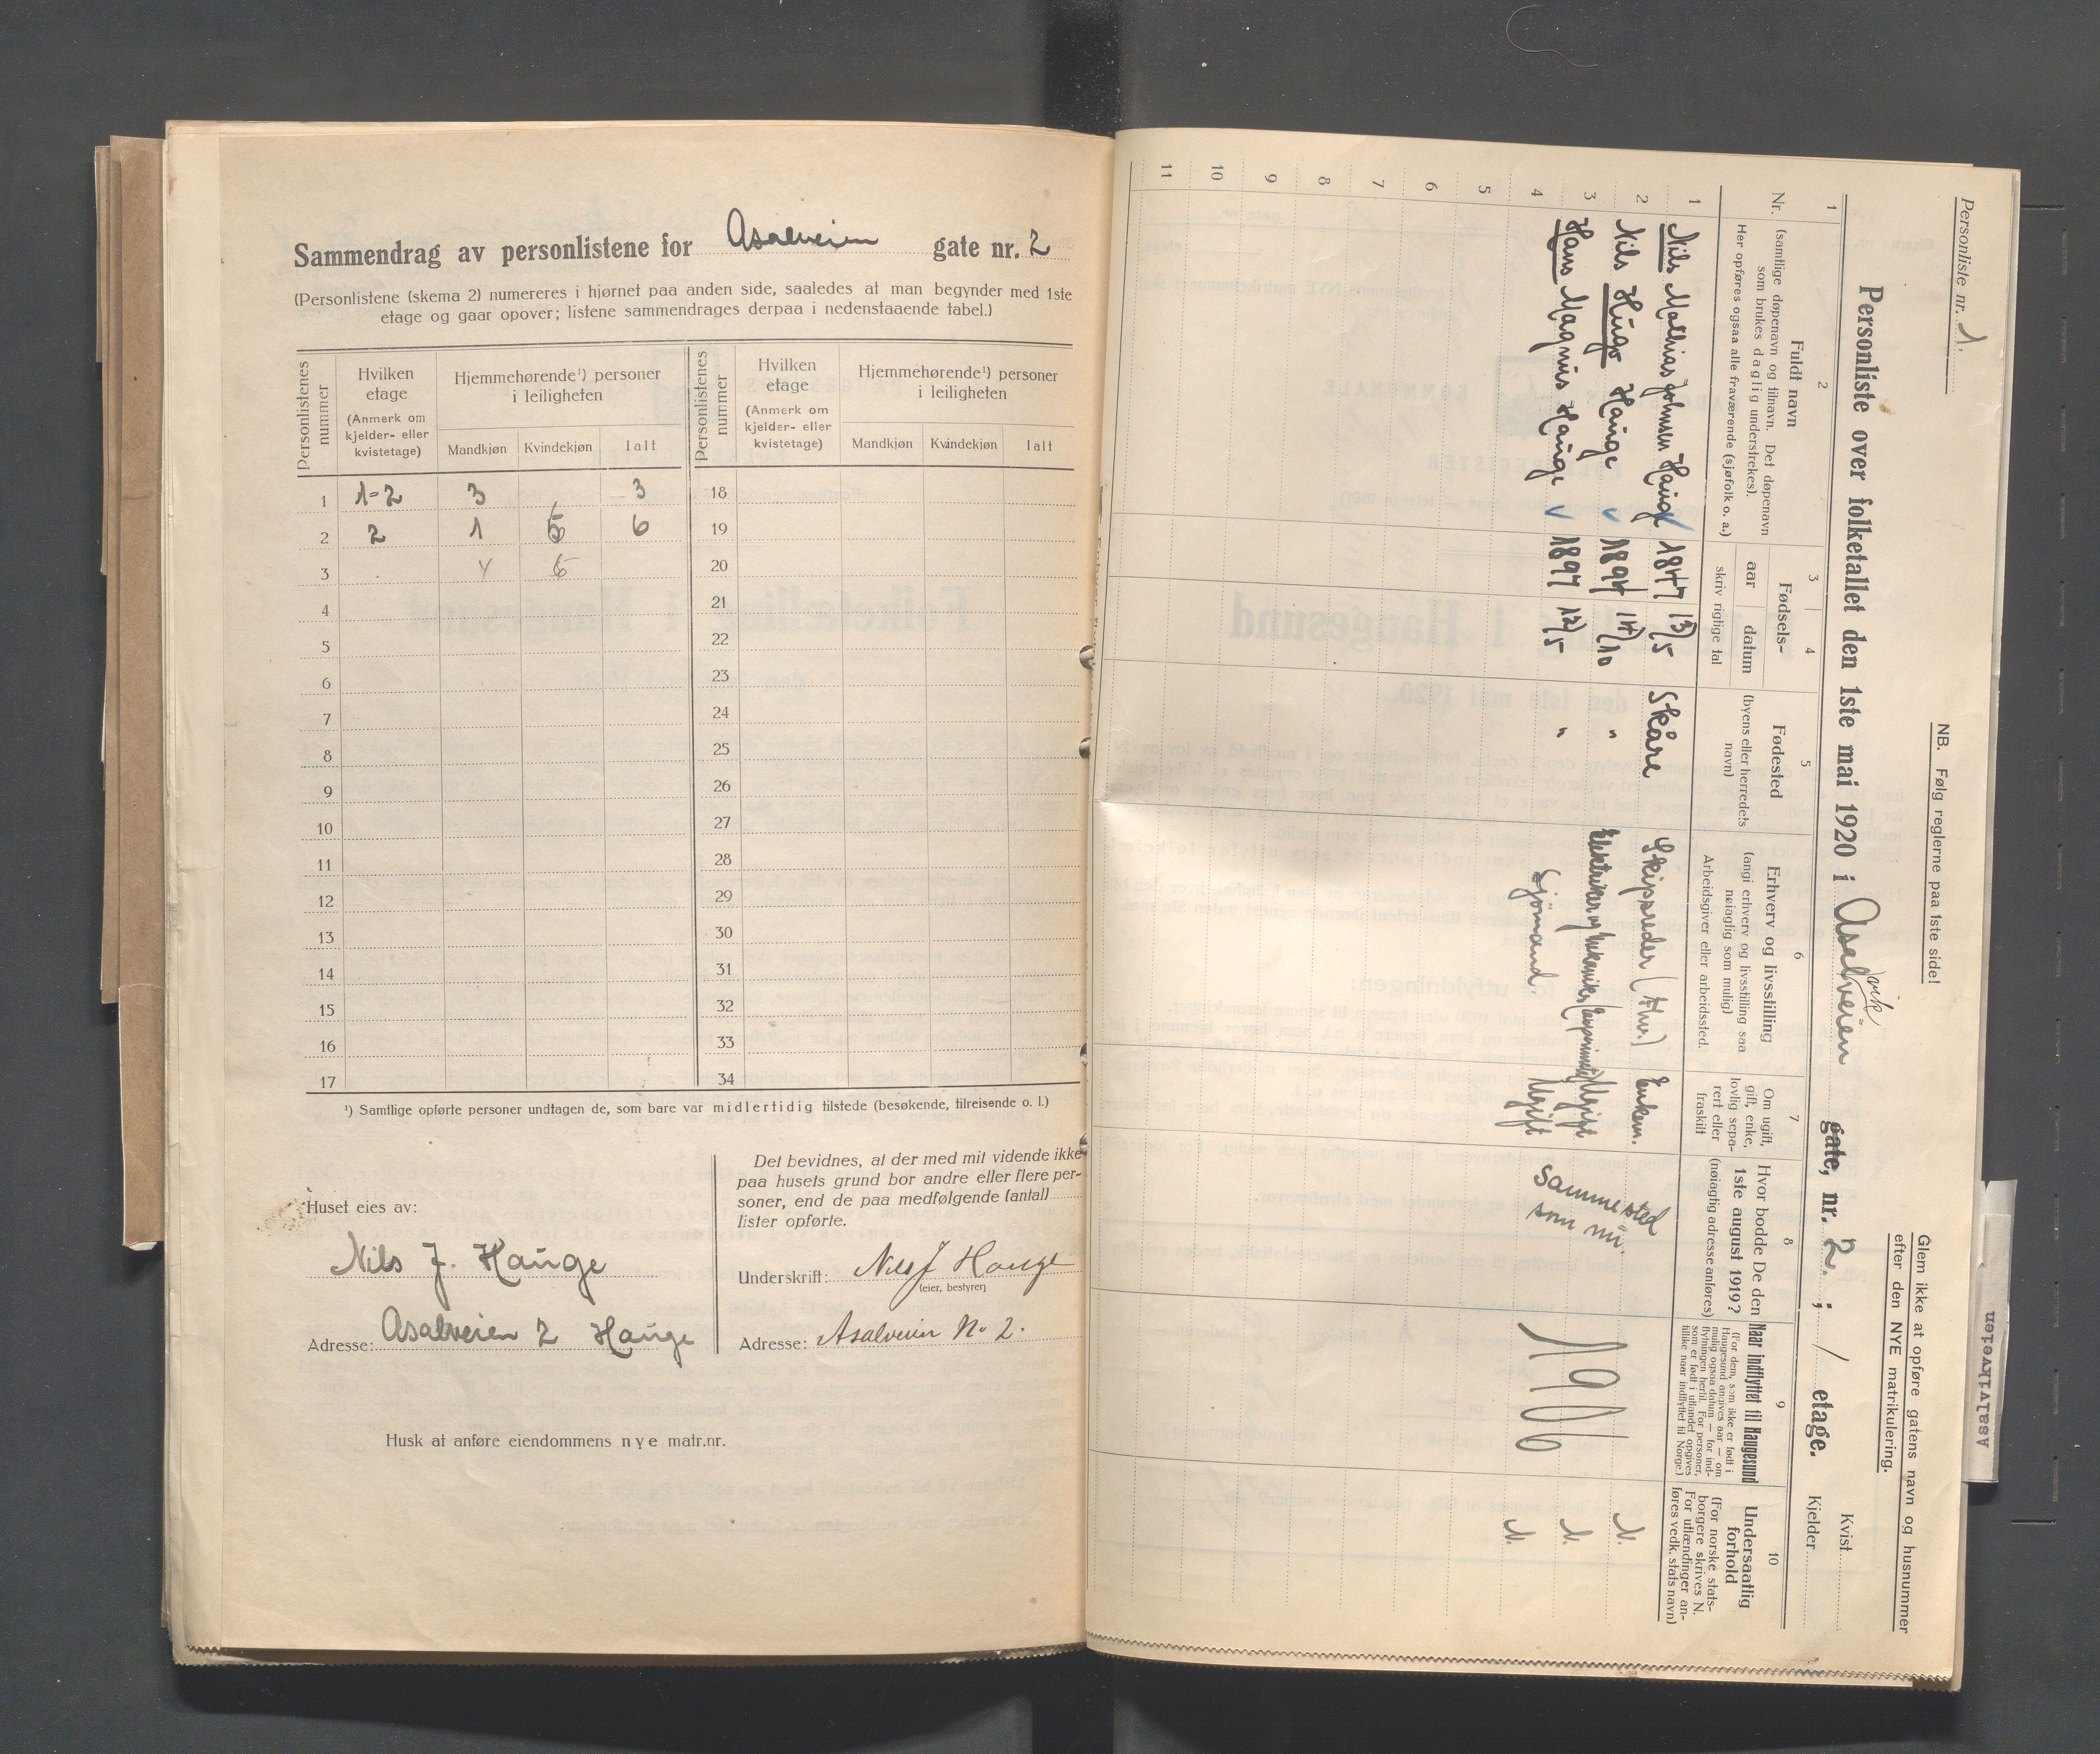 Sammendrag av personlistene for Asalveien gate nr. 2
(Personlistene (skema 2) numereres i hjørnet paa anden side, saaledes at man begynder med 1ste
etage og gaar opover; listene sammendrages derpaa i nedenstaaende tabel.)
Personlistenes nummer
Hvilken etage
(Anmerk om kjelder- eller kvistetage)
Hjemmehørende¹) personer i leiligheten
Mandkjøn Kvindekjøn Ialt
Personlistenes nummer
Hvilken etage
(Anmerk om kjelder- eller kvistetage)
Hjemmehørende¹) personer i leiligheten
Mandkjøn Kvindekjøn Ialt
1 1-2 3 3 18
2 2 1 5 6 19
3 4 5 20
4 21
5 22
6 23
7 24
8 25
9 26
10 27
11 28
12 29
13 30
14 31
15 32
16 33
17 34
¹) Samtlige opførte personer undtagen de, som bare var midlertidig tilstede (besøkende, tilreisende o. l.)
Huset eies av:
Nils J. Hauge
Adresse: Asalveien 2 Hauge
Det bevidnes, at der med mit vidende ikke
paa husets grund bor andre eller flere per-
soner, end de paa medfølgende (antal)
lister opførte.
Underskrift: Nils J Hauge
(eier, bestyrer)
Adresse: Asalveien No 2.
Husk at anføre eiendommens nye matr.nr.
Personliste nr. 1.
NB. Følg reglerne paa 1ste side!
Glem ikke at opføre gatens navn og husnummer
efter den NYE matrikulering.
Personliste over folketallet den 1ste mai 1920 i Asalvikveien gate, nr. 2. ; 1 etage.
Kvist
Kjelder
1 2 3 4 5 6 7 8 9 10
Nr.
Fuldt navn
(samtlige døpenavn og tilnavn. Det døpenavn
som brukes daglig understrekes).
Her opføres ogsaa alle fraværende (sjøfolk o. a.)
Fødsels-
aar datum
skriv rigtige tal
Fødested
(byens eller herredets
navn)
Erhverv og livsstilling
(angi erhverv og livsstilling saa
nøiagtig som mulig)
Arbeidsgiver eller arbeidssted.
Om ugift,
gift, enke,
lovlig sepa-
rert eller
fraskilt
Hvor bodde De den
1ste august 1919?
(nøiagtig adresse anføres)
Naar indflyttet til Haugesund
(For dem, som ikke er født i
Haugesund angives aar — om
mulig ogsaa datum — for ind-
flytningen hertil. For personer,
som er født i utlandet opgives
tillike naar indflyttet til Norge.)
Undersaatlig
forhold
(For norske stats-
borgere skrives N.
For utlændinger an-
føres vedk. stats navn)
1 Nils Mathias Johnsen Hauge 1847 13/5 Skåre Skipsreder (fhv.) Enkem. Sammested som nu. 1906 N.
2 Nils Hugo Hauge 1894 14/10 " Elektriker og mekaniker Ugift N.
3 Hans Magnus Hauge 1897 12/5 " Sjömand Ugift N.
4
5
6
7
8
9
10
11
Asalvikveien